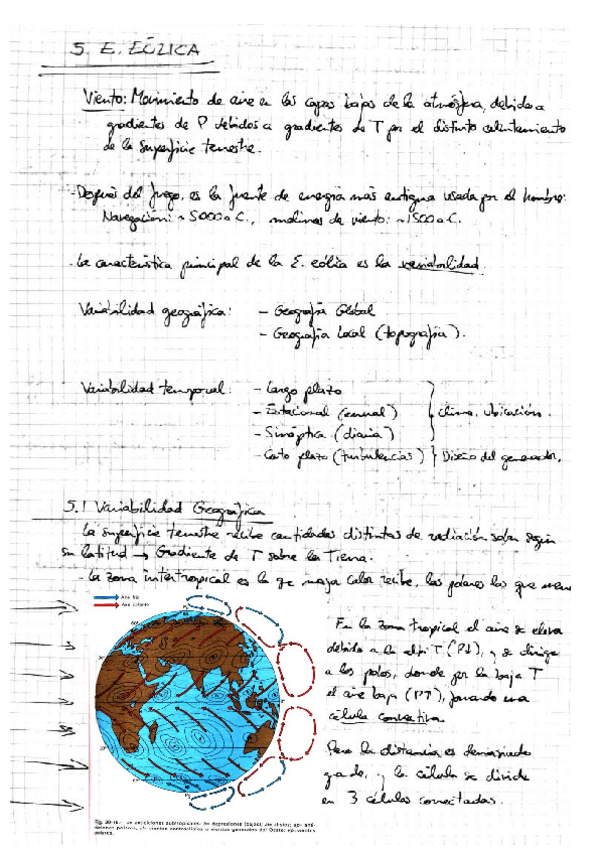 5. E. EÓLICA
Viento: Movimiento de aire en las capas bajas de la atmósfera, debido a
gradientes de P debidos a gradientes de T por el distinto calentamiento
de la superficie terrestre.
- Después del fuego, es la fuente de energía más antigua usada por el hombre:
Navegación: ~5000 a C., molinos de viento: ~1500 a C.
- La característica principal de la E. eólica es la variabilidad.
Variabilidad geográfica: - Geografía Global
- Geografía Local (topografía).
Variabilidad temporal: - Largo plazo
- Estacional (annual) } Clima, Ubicación.
- Sinóptica (diaria)
- Corto plazo (turbulencias) } Diseño del generador.
5.1 Variabilidad Geográfica
La superficie terrestre recibe cantidades distintas de radiación solar según
su latitud → Gradiente de T sobre la Tierra.
- La zona intertropical es la qe mayor calor recibe, los polares las que menos
Aire frío
Aire caliente
En la zona tropical el aire se eleva
debido a la alta T (P↓), y se dirige
a los polos, donde por la baja T
el aire baja (P↑), formando una
célula convectiva.
Pero la distancia es demasiado
grande, y la célula se divide
en 3 células conectadas.